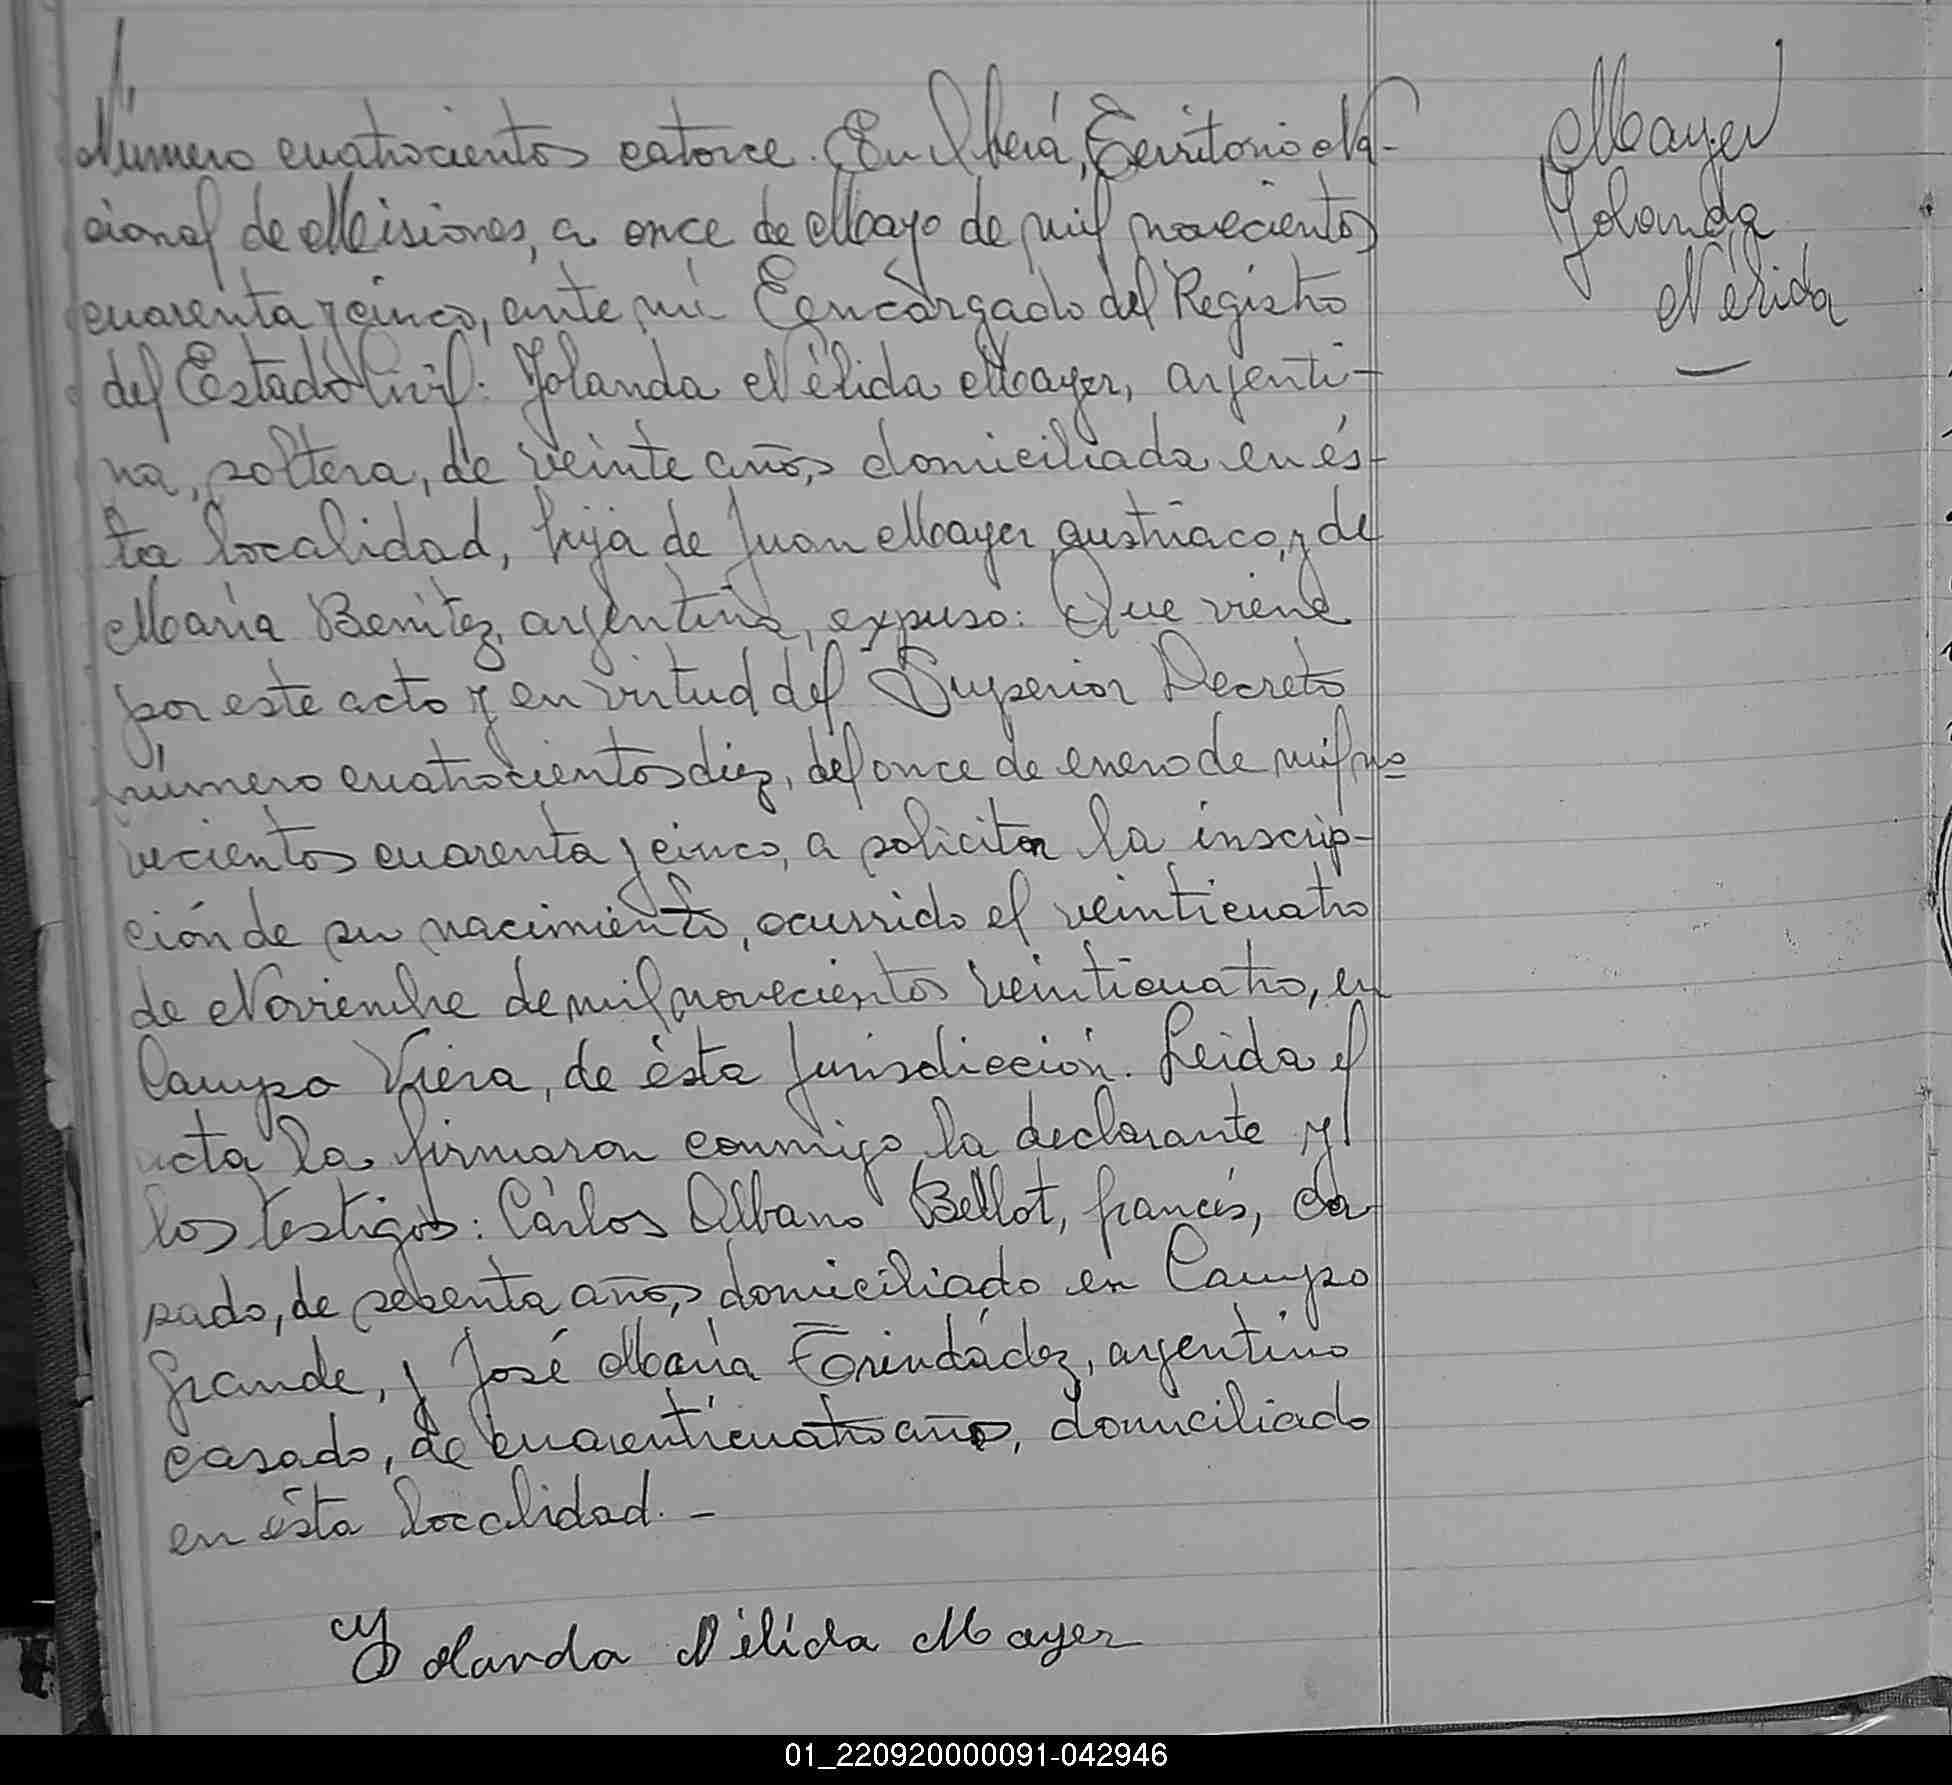 Número cuatrocientos catorce. En Oberá, Territorio Na-
cional de Misiones, a once de Mayo de mil novecientos
cuarenta y cinco, ante mí Encargado del Registro
del Estado Civil: Yolanda Nélida Mayer, argenti-
na, soltera, de veinte años, domiciliada en és-
ta localidad, hija de Juan Mayer, austriaco, y de
María Benitez, argentina, expuso: Que viene
por este acto y en virtud del Superior Decreto
número cuatrocientos diez, del once de enero de mil no
vecientos cuarenta y cinco, a solicitar la inscrip-
ción de su nacimiento, ocurrido el veinticuatro
de Noviembre de mil novecientos veinticuatro, en
Campo Viera, de ésta jurisdicción. Leida el
acta la firmaron conmigo la declarante y
los testigos: Cárlos Albano Bellot, francés, ca-
sado, de sesenta años, domiciliado en Campo
grande, y José María Trindádez, argentino
casado, de cuarenticuatro años, domiciliado
en ésta localidad. -
Yolanda Nélida Mayer
Mayer
Yolanda
Nélida
01_220920000091-042946